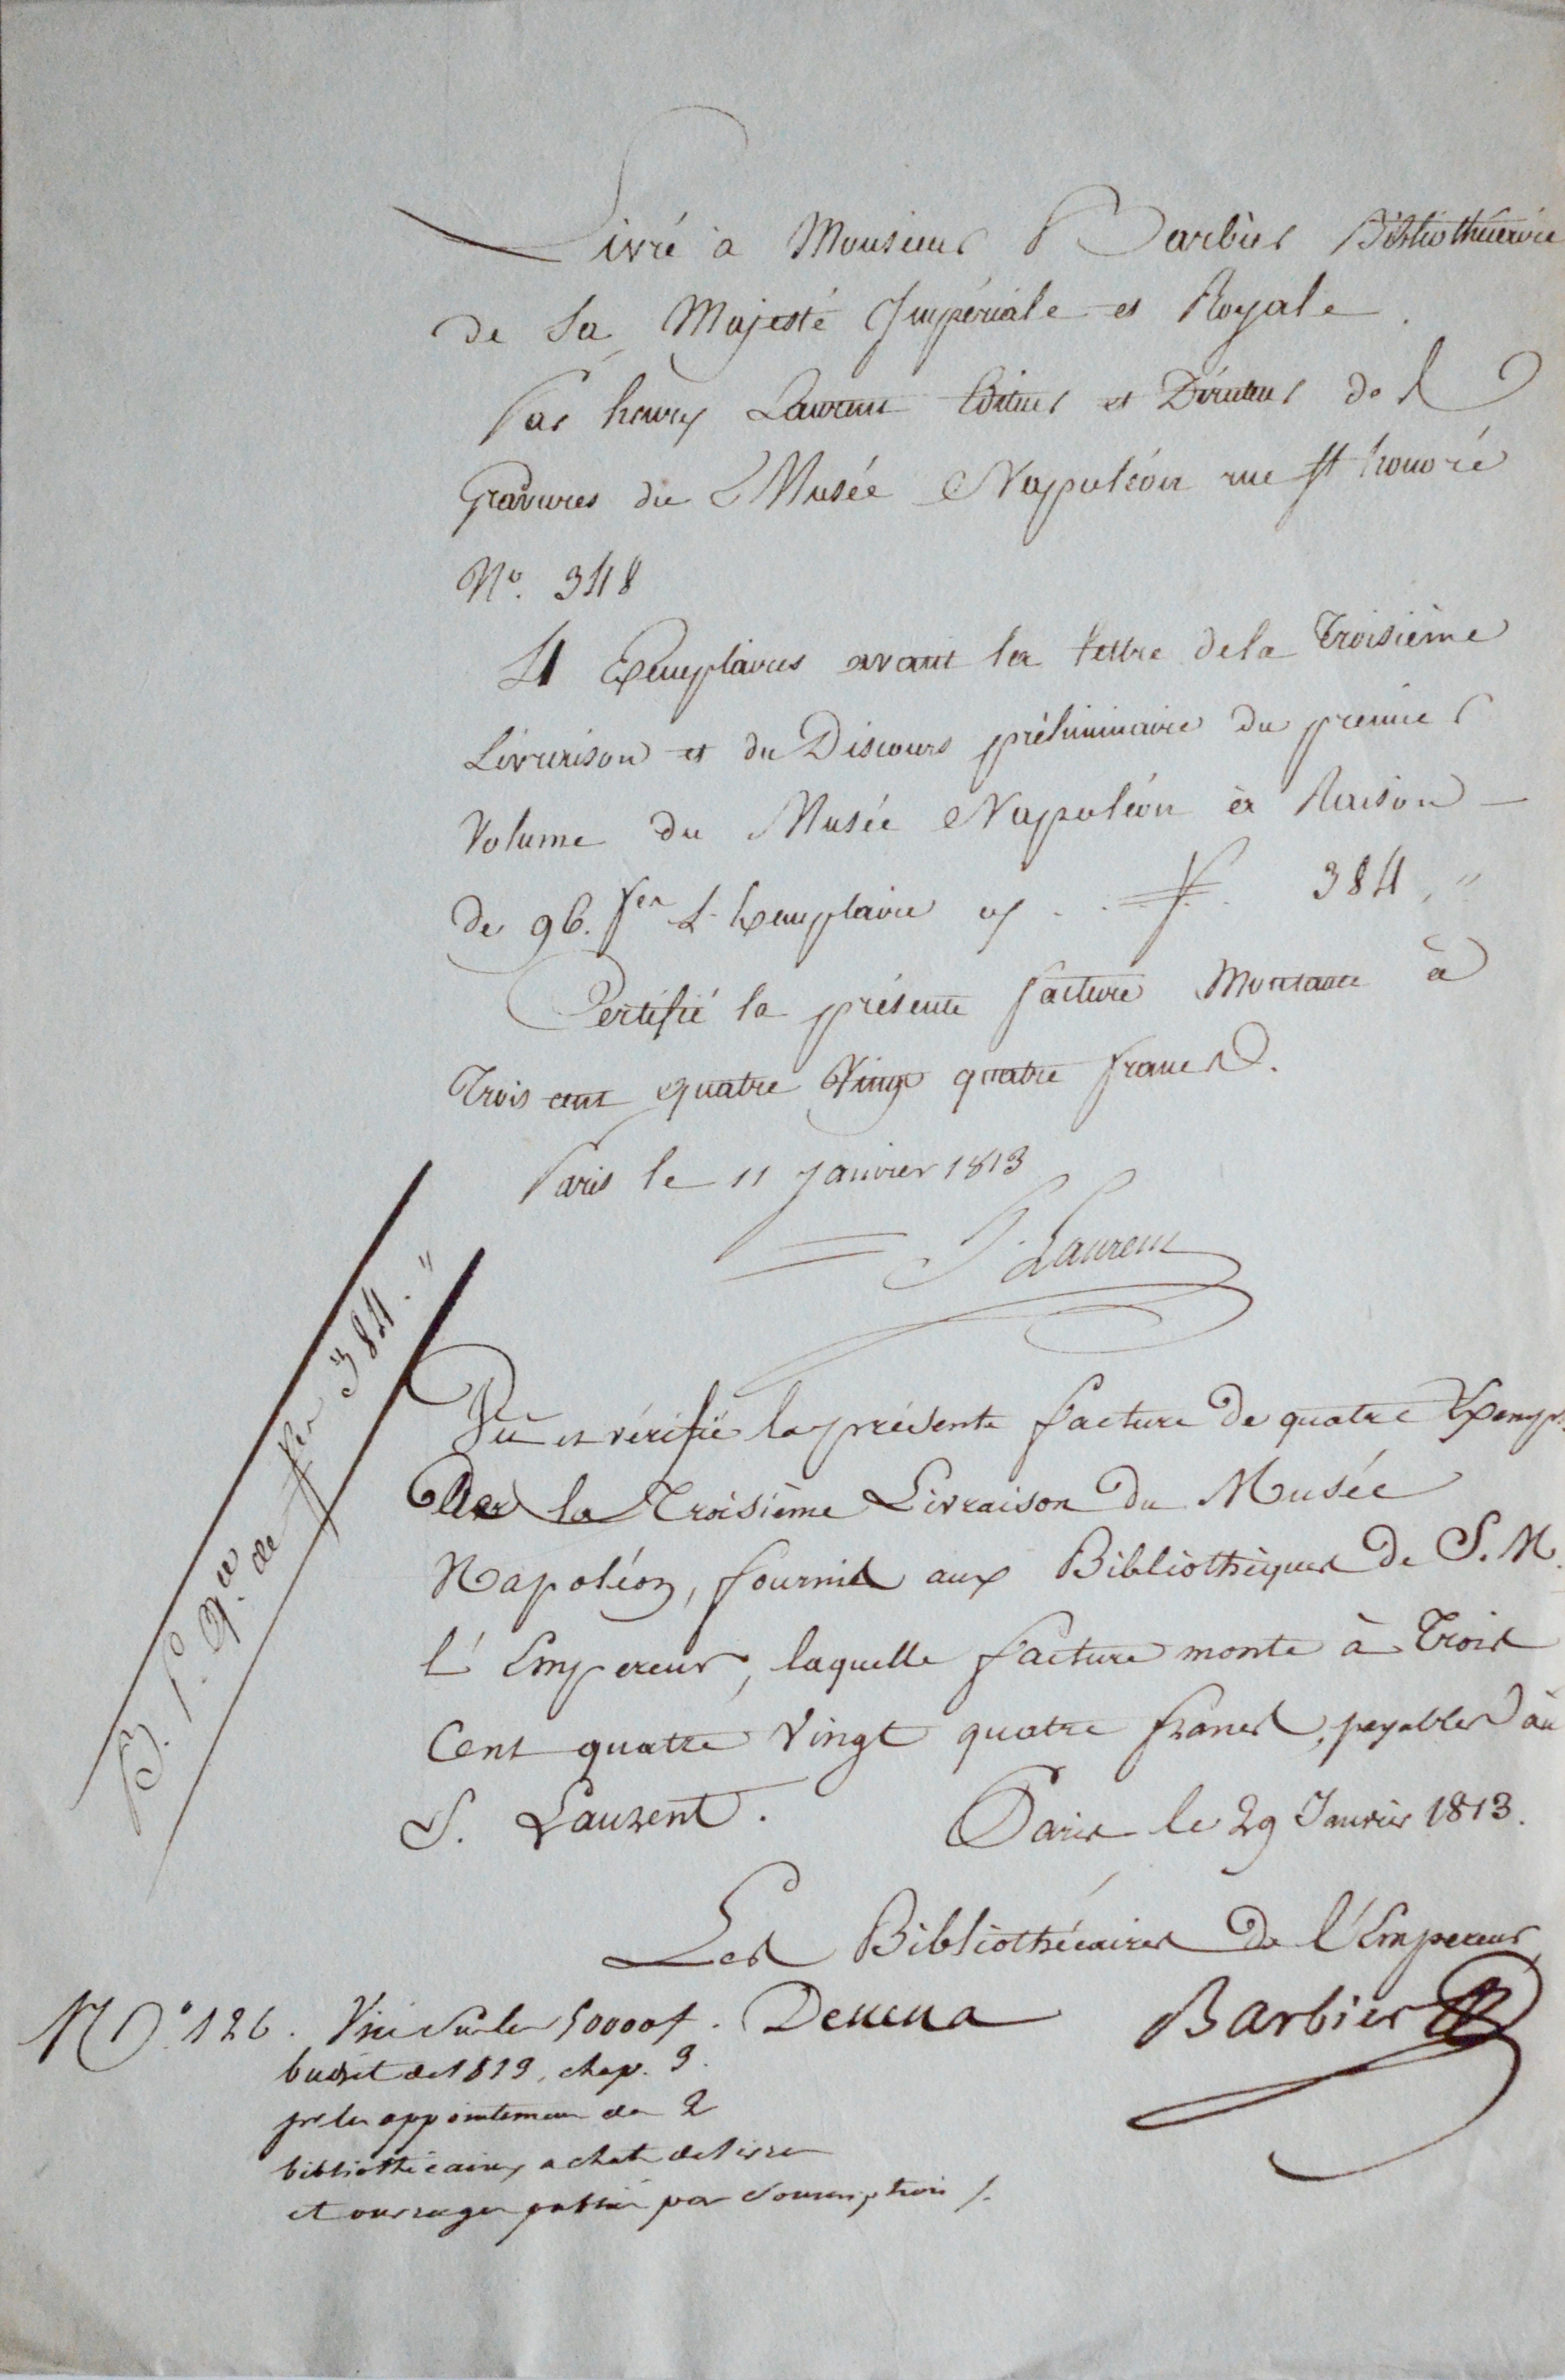 Livré à Monsieur Barbier Bibliothécaire
de Sa Majesté Impériale et Royale
Par henry Laurent Editeur et Directeur des
Gravures du Musée Napoléon rue St honoré
No. 348
4 Exemplaires avant la lettre de la Troisième
Livraison et du Discours préliminaire du premier
Volume du Musée Napoléon à Raison
de 96. fcs L'Exemplaire cy . . . f 384 "
Certifié la présente facture Montante à
Trois cent quatre Vingt quatre francs.
Paris le 11 Janvier 1813
h. Laurent
B. P. Qce de fcs 384. "
Vu et vérifié la présente facture de quatre Exempres
de la Troisième Livraison du Musée
Napoléon, fournis aux Bibliothèques de S. M.
l'Empereur, laquelle facture monte à Trois
Cent quatre Vingt quatre francs, payables au
S. Laurent. Paris le 29 Janvier 1813.
Les Bibliothécaires de l'Empereur
Denina Barbier
No. 126. sur les 50000 f.
budget de 1813, chap. 3.
pr les appointemens de 2
bibliothécaires, achat de livres
et ouvrages publiés par souscription /.